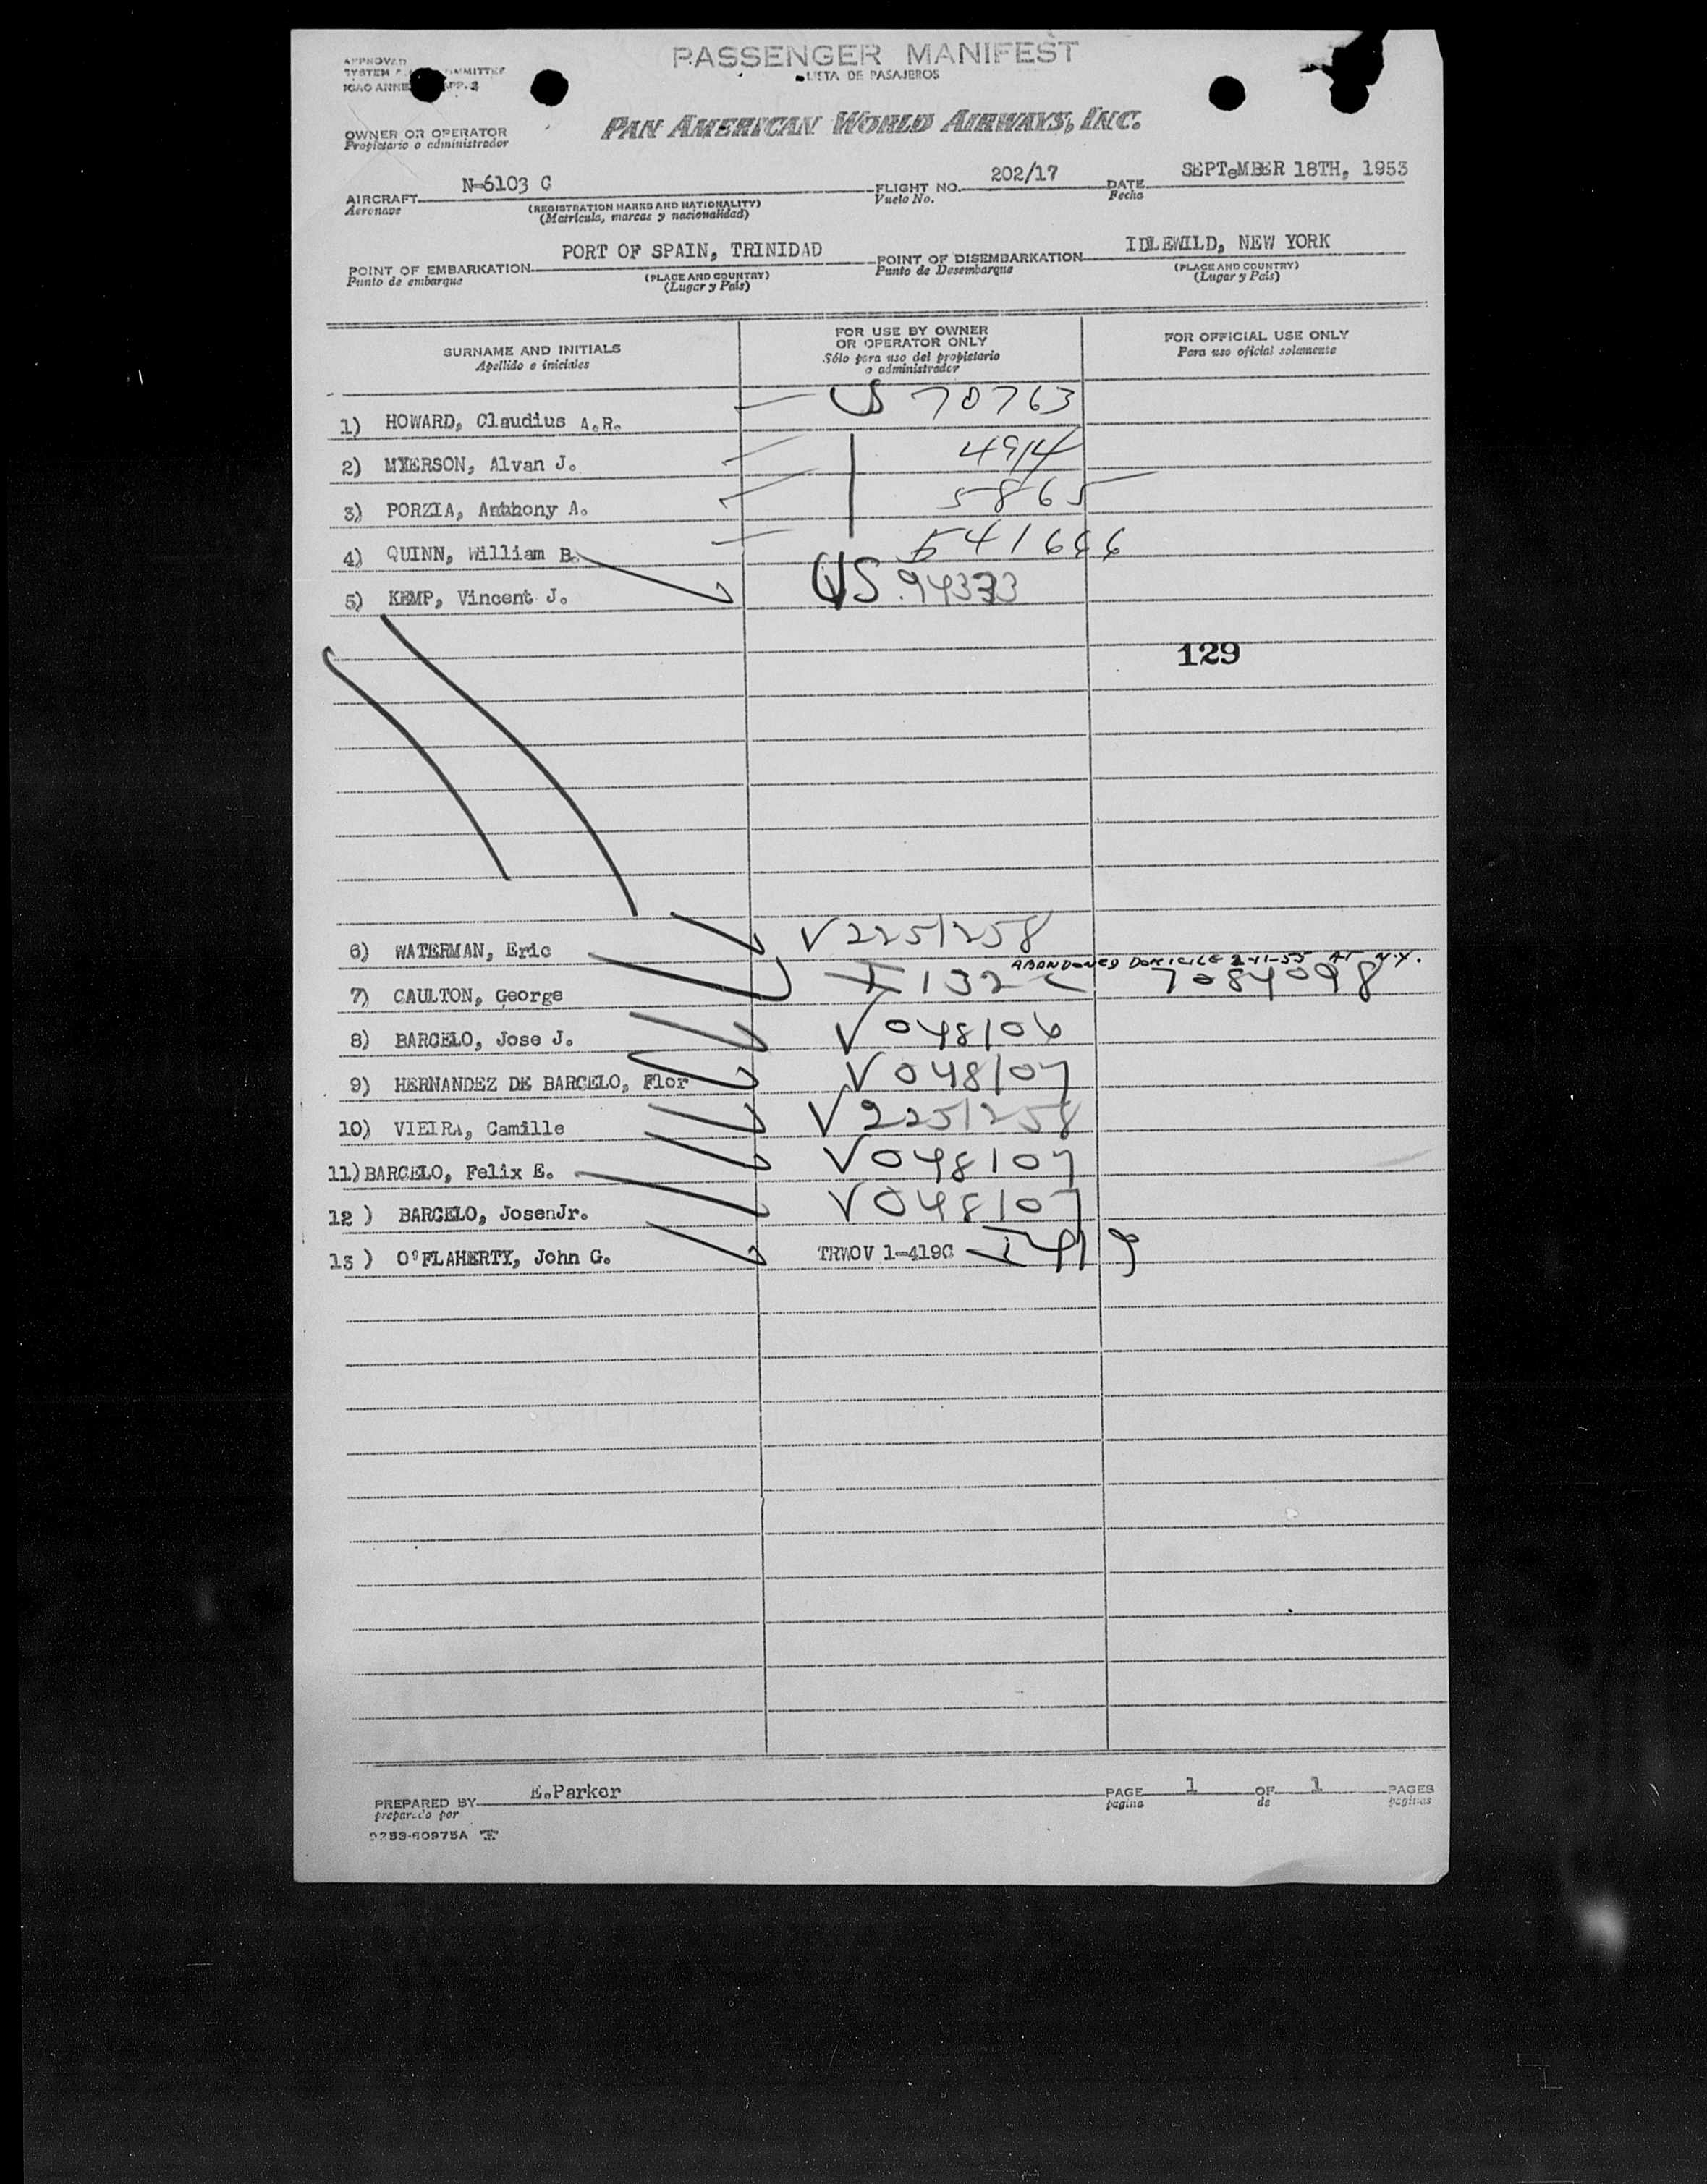 PASSENGER MANIFEST
LISTA DE PASAJEROS
APPROVED
SYSTEM
ICAO ANNE APP. 2
OWNER OR OPERATOR
Propietario o administrador
PAN AMERICAN WORLD AIRWAYS, INC.
AIRCRAFT N-6103 C FLIGHT NO. 202/17 DATE SEPTeMBER 18TH, 1953
Aeronave (REGISTRATION MARKS AND NATIONALITY) Vuelo No. Fecha
(Matricula, marcas y nacionalidad)
POINT OF EMBARKATION PORT OF SPAIN, TRINIDAD POINT OF DISEMBARKATION IDLEWILD, NEW YORK
Punto de embarque (PLACE AND COUNTRY) Punto de Desembarque (PLACE AND COUNTRY)
(Lugar y País) (Lugar y País)
SURNAME AND INITIALS
Apellido e iniciales
FOR USE BY OWNER
OR OPERATOR ONLY
Sólo para uso del propietario
o administrador
FOR OFFICIAL USE ONLY
Para uso oficial solamente
1) HOWARD, Claudius A.R. US 70763
2) MYERSON, Alvan J. 4914
3) PORZIA, Anthony A. 5865
4) QUINN, William B. 541666
5) KEMP, Vincent J. US 94333
129
6) WATERMAN, Eric V2251258
ABANDONED DOMICILE 2-11-55 AT N.Y.
7) CAULTON, George I 132 C 7084098
8) BARCELO, Jose J. V048106
9) HERNANDEZ DE BARCELO, Flor V048107
10) VIEIRA, Camille V2251258
11) BARCELO, Felix E. V048107
12 ) BARCELO, JosenJr. V048107
13 ) O'FLAHERTY, John G. TRWOV 1-419C I 419
PREPARED BY E.Parker PAGE 1 OF 1 PAGES
preparado por pagina de paginas
0253-60975A